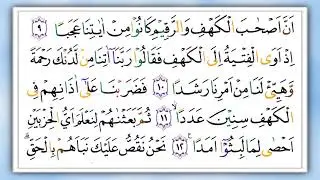 اَنَّ اَصْحٰبَ الْكَهْفِ وَالرَّقِيْمِ كَانُوْا مِنْ اٰيٰتِنَا عَجَبًا ﴿٩﴾
اِذْ اَوَى الْفِتْيَةُ اِلَى الْكَهْفِ فَقَالُوْا رَبَّنَآ اٰتِنَا مِنْ لَّدُنْكَ رَحْمَةً
وَّهَيِّئْ لَنَا مِنْ اَمْرِنَا رَشَدًا ﴿١٠﴾ فَضَرَبْنَا عَلٰٓى اٰذَانِهِمْ فِى
الْكَهْفِ سِنِيْنَ عَدَدًا ﴿١١﴾ ثُمَّ بَعَثْنٰهُمْ لِنَعْلَمَ اَيُّ الْحِزْبَيْنِ
اَحْصٰى لِمَا لَبِثُوْٓا اَمَدًا ﴿١٢﴾ نَحْنُ نَقُصُّ عَلَيْكَ نَبَاَهُمْ بِالْحَقِّ